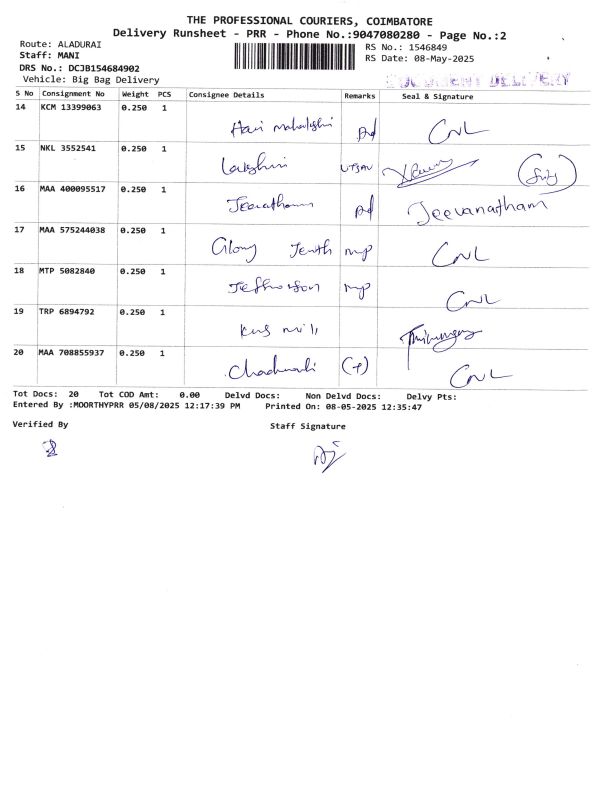 THE PROFESSIONAL COURIERS, COIMBATORE
Delivery Runsheet - PRR - Phone No.:9047080280 - Page No.:2
Route: ALADURAI
Staff: MANI
DRS No.: DCJB154684902
Vehicle: Big Bag Delivery
RS No.: 1546849
RS Date: 08-May-2025
DELIVERY
S No Consignment No Weight PCS Consignee Details Remarks Seal & Signature
14 KCM 13399063 0.250 1 CNL
15 NKL 3552541 0.250 1 Lakshmi
16 MAA 400095517 0.250 1 Jeevanatham
17 MAA 575244038 0.250 1 Glory CNL
18 MTP 5082840 0.250 1 CNL
19 TRP 6894792 0.250 1
20 MAA 708855937 0.250 1 CNL
Tot Docs: 20 Tot COD Amt: 0.00 Delvd Docs: Non Delvd Docs: Delvy Pts:
Entered By :MOORTHYPRR 05/08/2025 12:17:39 PM Printed On: 08-05-2025 12:35:47
Verified By Staff Signature